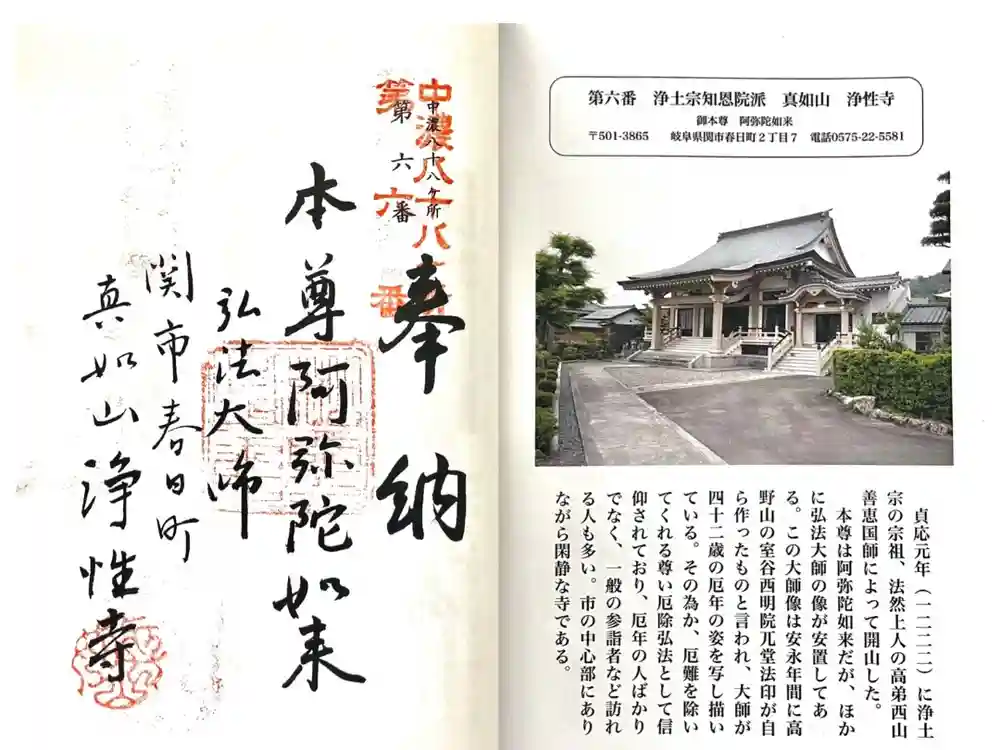 中濃八十八ヶ所
第六番
中濃八十八
第六番
奉納
本尊阿弥陀如来
弘法大師
関市春日町
真如山浄性寺
第六番 浄土宗知恩院派 真如山 浄性寺
御本尊 阿弥陀如来
〒501-3865 岐阜県関市春日町2丁目7 電話0575-22-5581
貞応元年(一二二二)に浄土
宗の宗祖、法然上人の高弟西山
善恵国師によって開山した。
本尊は阿弥陀如来だが、ほか
に弘法大師の像が安置してあ
る。この大師像は安永年間に高
野山の室谷西明院兀堂法印が自
ら作ったものと言われ、大師が
四十二歳の厄年の姿を写し描い
ている。その為か、厄難を除い
てくれる尊い厄除弘法として信
仰されており、厄年の人ばかり
でなく、一般の参詣者など訪れ
る人も多い。市の中心部にあり
ながら閑静な寺である。